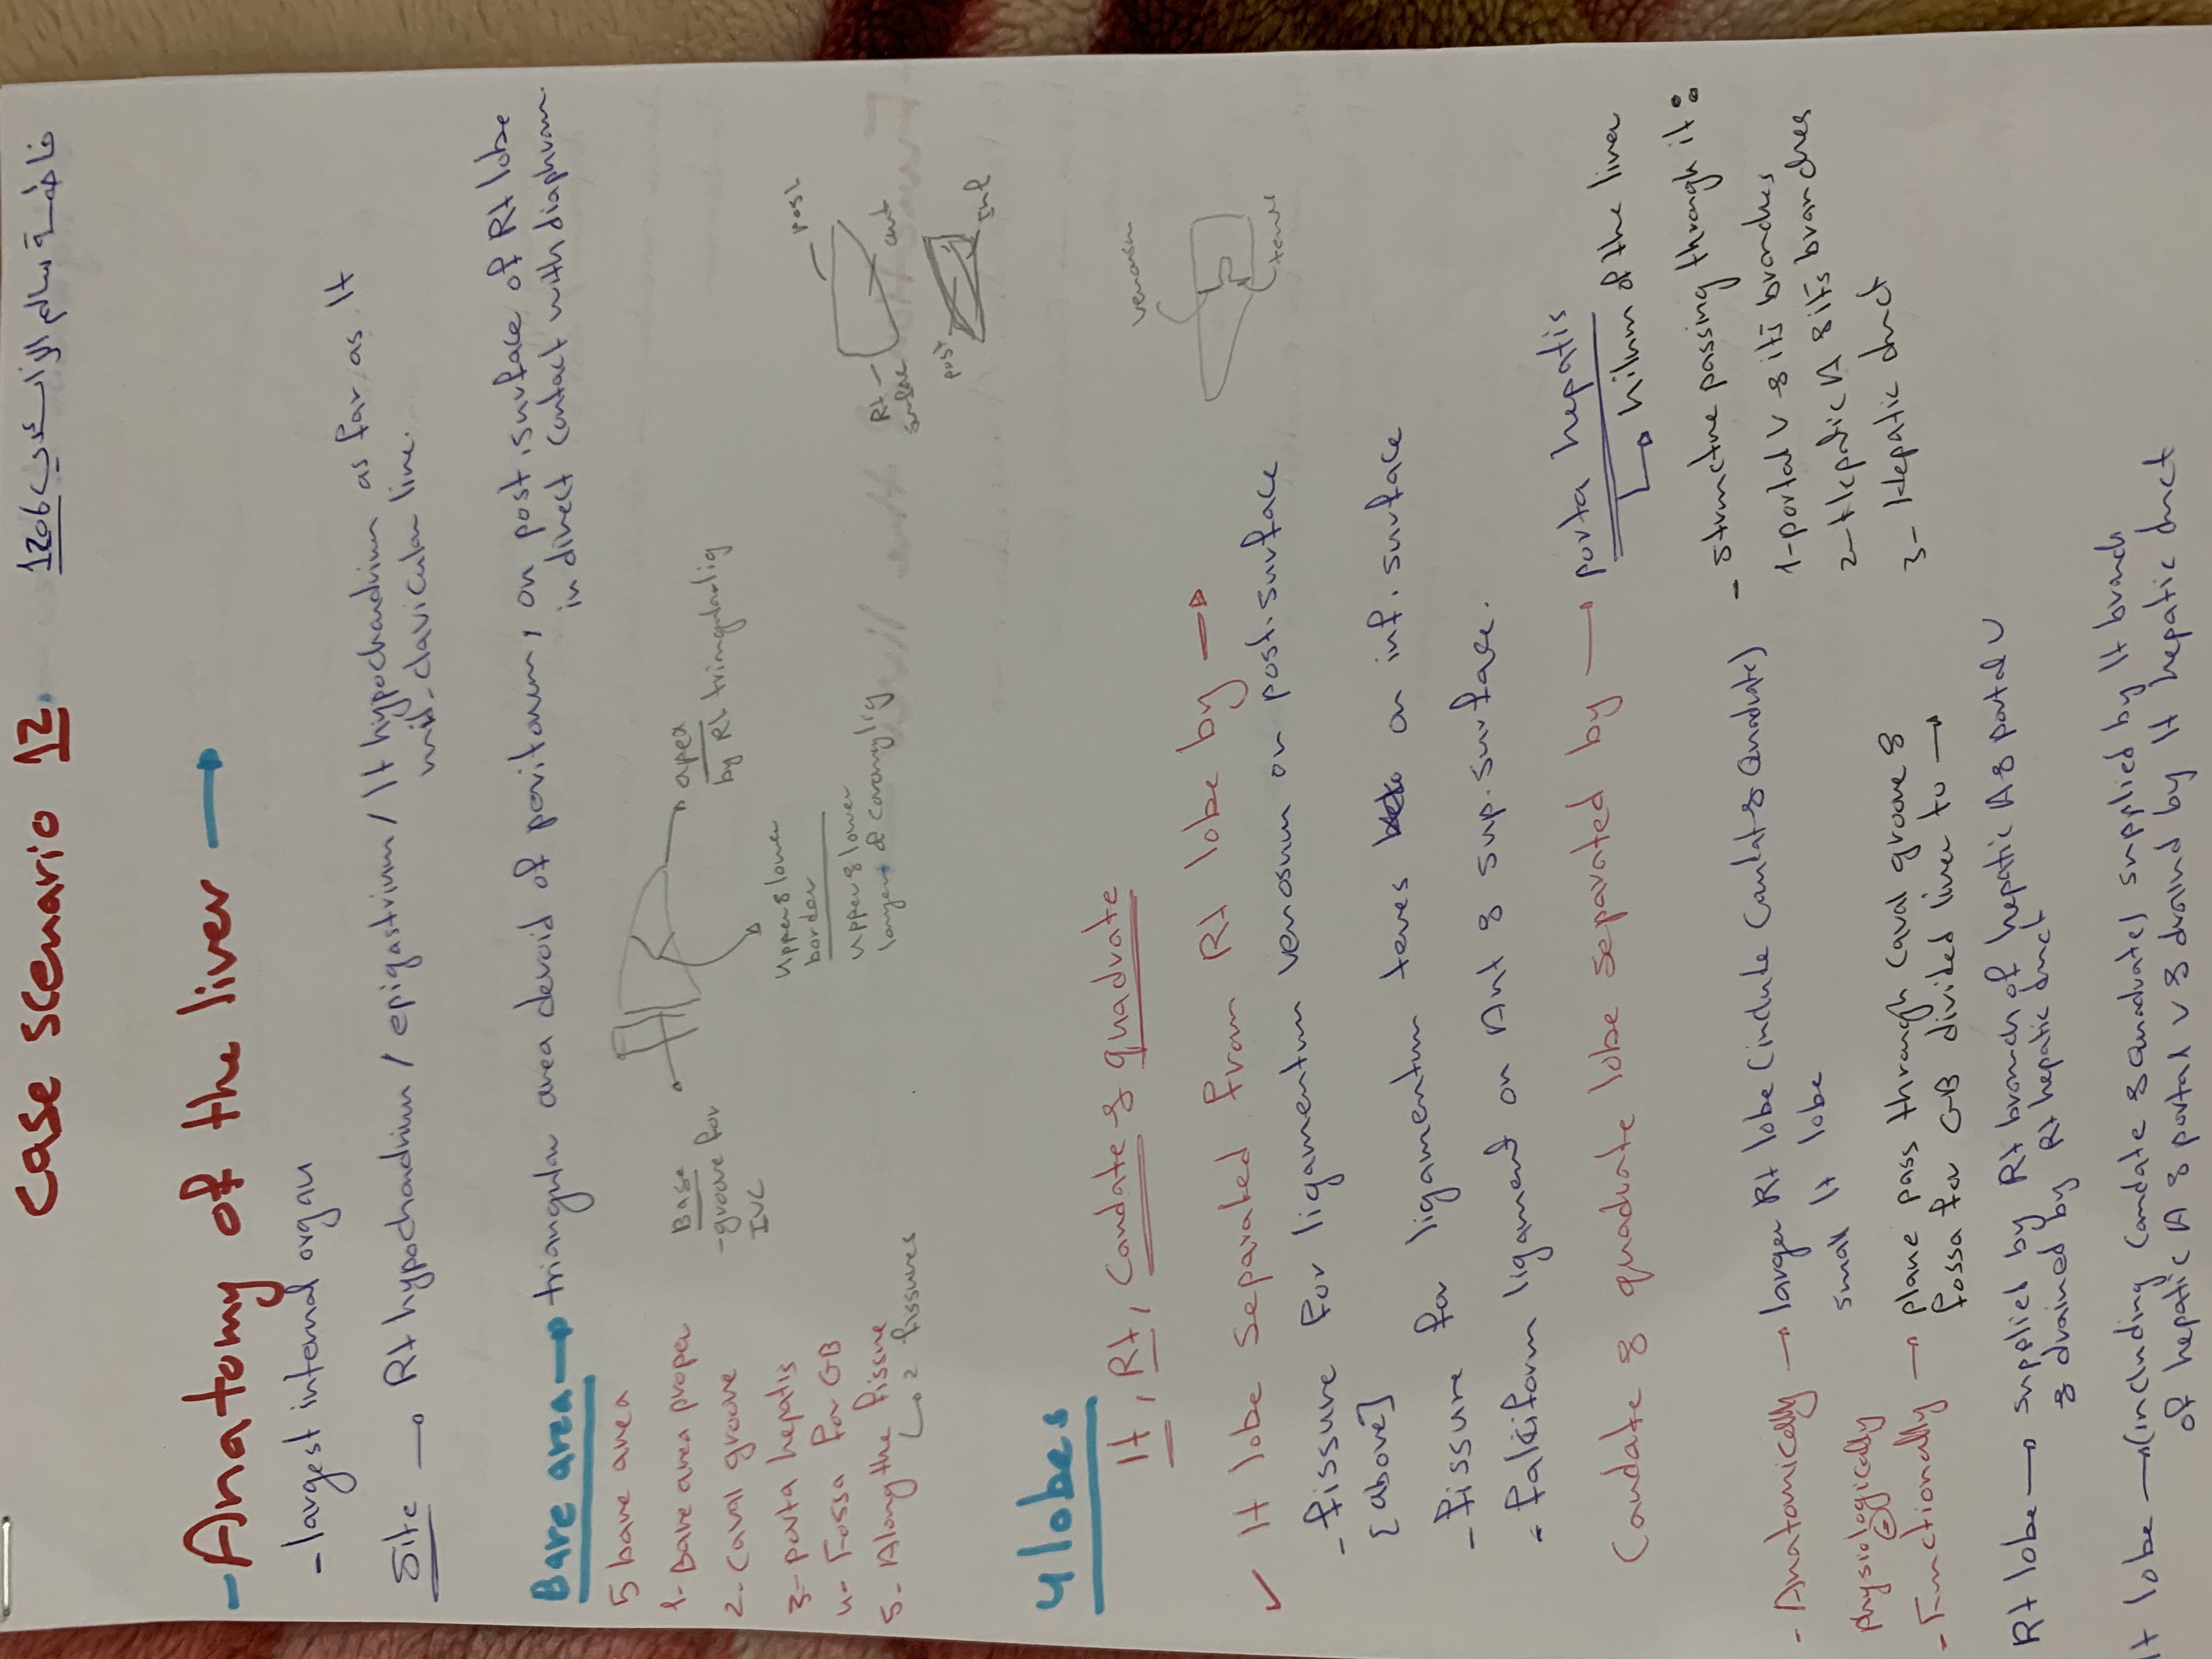 Case scenario 12.
1206
- Anatomy of the liver →
- largest internal organ
Site → Rt hypochondrium / epigastrium / lt hypochondrium as far as lt
mid-clavicular line.
Bare area → triangular area devoid of peritoum, on post. surface of Rt lobe
in direct contact with diaphram.
5 bare area
1- Bare area proper
2- caval groove
3- porta hepatis
4- Fossa for GB
5- Along the fissure
↳ 2 fissures
Base
- groove for
IVC
apex
by Rt triangular lig
upper & lower
border
upper & lower
layer of coronary lig
post
Rt
surface
ant
post
inf
4 lobes
lt, Rt, Caudate & quadrate
✓ lt lobe separated from Rt lobe by →
- fissure for ligamentum venosum on post. surface
[above]
- fissure for ligamentum teres on inf. surface
- falciform ligament on Ant & sup. surface.
venosum
teres
Caudate & quadrate lobe separated by → porta hepatis
↳ hilum of the liver
- structure passing through it:
1- portal v & its branches
2- Hepatic A & its branches
3- Hepatic duct
- Anatomically → larger Rt lobe (include Caudat & Quadrate)
small lt lobe
physiologically
=
- Functionally → plane pass through caval groove &
fossa for GB divided liver to →
Rt lobe → supplied by Rt branch of hepatic A & portal V
& drained by Rt hepatic duct
lt lobe → (including caudate & quadrate) supplied by lt branch
of hepatic A & portal v & draind by lt hepatic duct